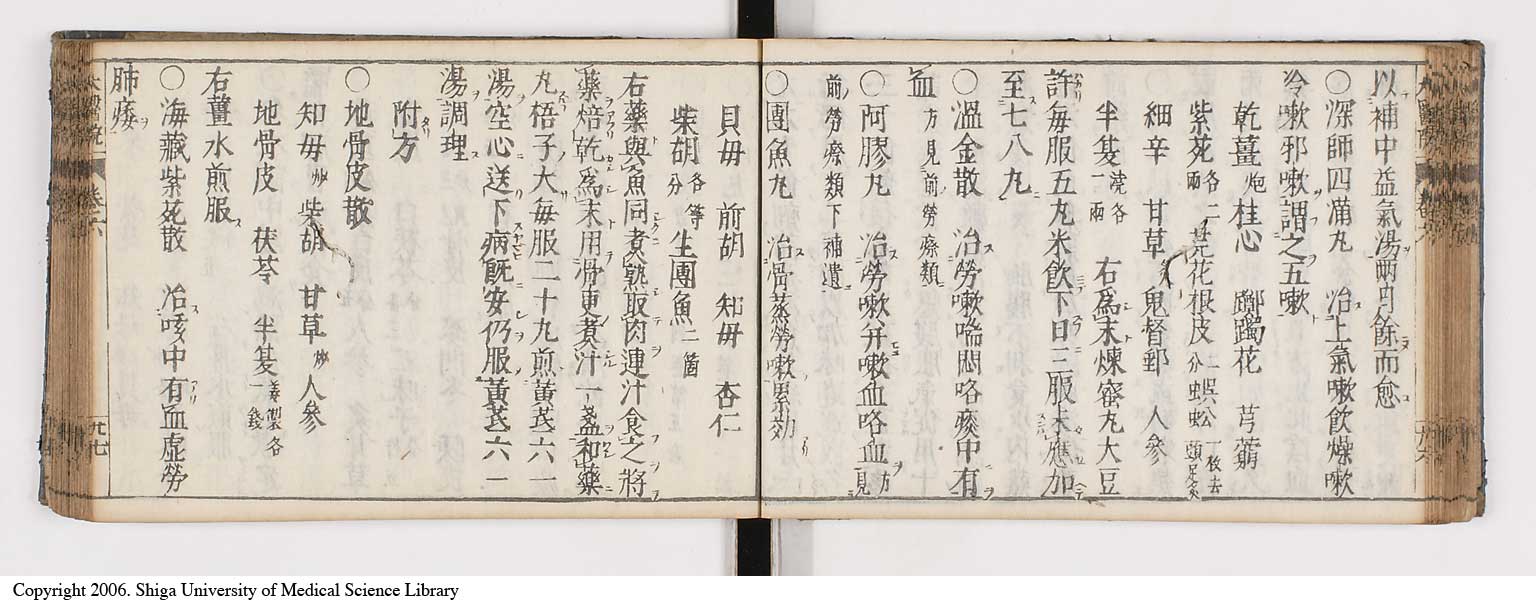 以補中益氣湯兩月餘而愈
〇深師四滿丸　治上氣嗽飲燥嗽
冷嗽邪嗽謂之五嗽
乾薑炮　桂心　躑躅花　芎藭
紫菀各二兩　芫花根皮二分　蜈蚣一枚去頭足炙
細辛　甘草炙　鬼督郵　人參
半夏洗各一兩　右爲末煉蜜丸大豆
許每服五丸米飲下日三服未應加
至七八丸
〇溫金散　治勞嗽喘悶咯痰中有
血方見前勞瘵類
〇阿膠丸　治勞嗽幷嗽血咯血方見
前勞瘵類下補遺
〇團魚丸　治骨蒸勞嗽累効
貝母　前胡　知母　杏仁
柴胡各等分　生團魚二箇
右藥與魚同煮熟取肉連汁食之將
藥焙乾爲末用骨更煮汁一盞和藥
丸梧子大每服二十丸煎黃芪六一
湯空心送下病旣安仍服黃芪六一
湯調理
附方
〇地骨皮散
知母炒　柴胡　甘草炒　人參
地骨皮　茯苓　半夏薑製各一錢
右薑水煎服
〇海藏紫菀散　治咳中有血虛勞
肺痿
九七
Copyright 2006. Shiga University of Medical Science Library